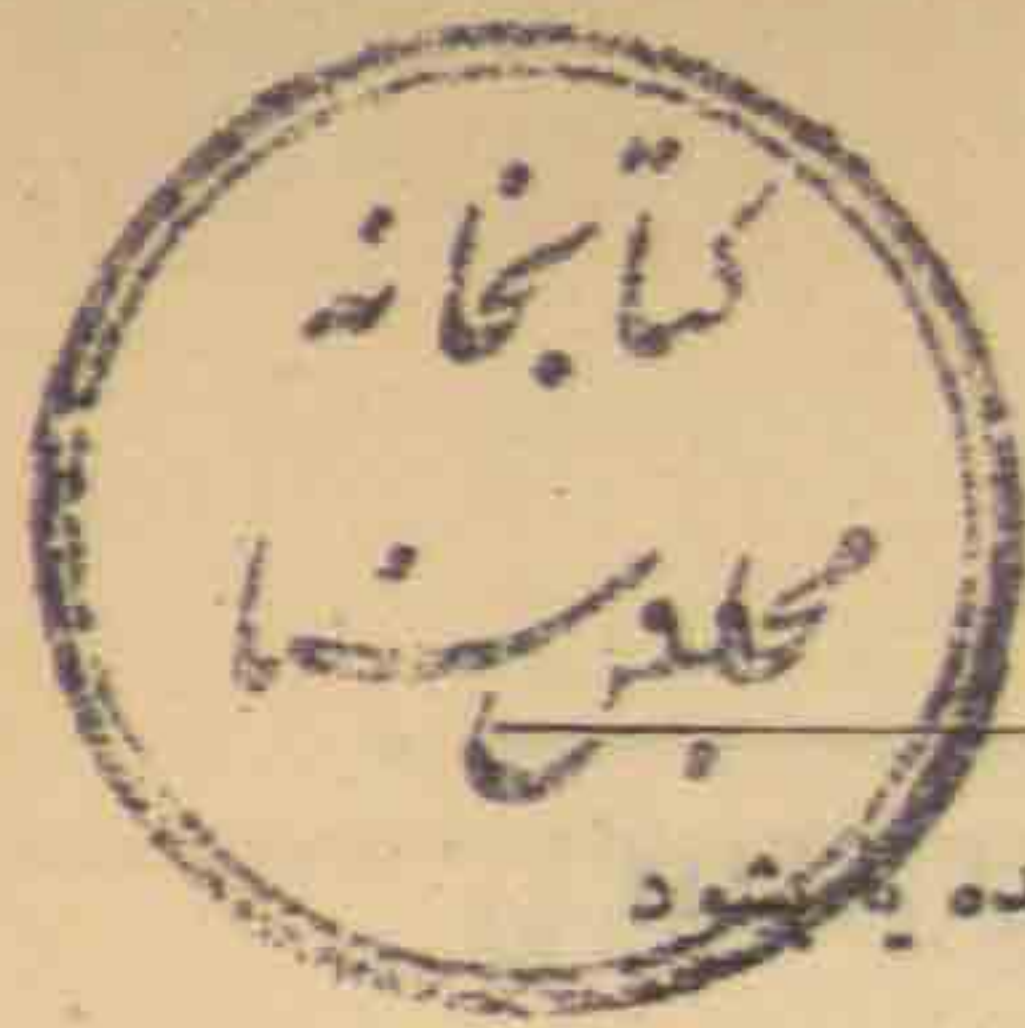 کتابخانه
مجلس سنا
ده یا بشود